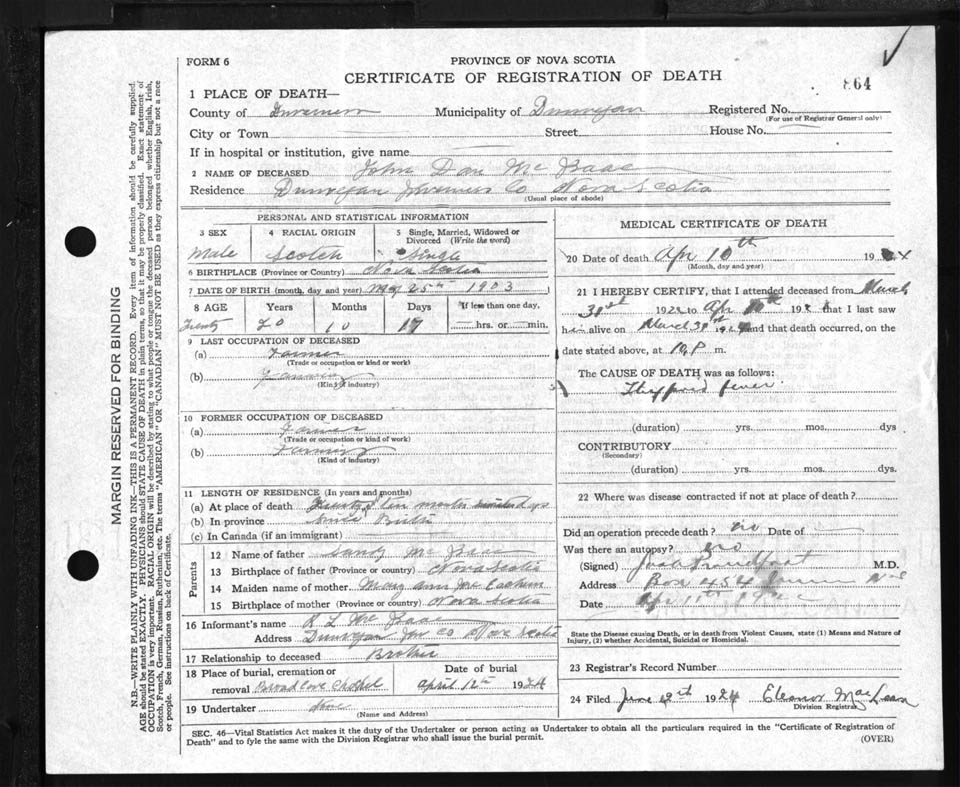 FORM 6
PROVINCE OF NOVA SCOTIA
CERTIFICATE OF REGISTRATION OF DEATH
864
1 PLACE OF DEATH—
County of Inverness Municipality of Dunvegan Registered No.
(For use of Registrar General only)
City or Town Street House No.
If in hospital or institution, give name
2 NAME OF DECEASED John Dan Mc Isaac
Residence Dunvegan Inverness Co Nova Scotia
(Usual place of abode)
PERSONAL AND STATISTICAL INFORMATION
3 SEX 4 RACIAL ORIGIN 5 Single, Married, Widowed or Divorced (Write the word)
Male Scotch Single
6 BIRTHPLACE (Province or Country) Nova Scotia
7 DATE OF BIRTH (month, day and year) May 25th 1903
8 AGE Years Months Days If less than one day,
Twenty 20 10 17 hrs. or min.
9 LAST OCCUPATION OF DECEASED
(a) Farmer
(Trade or occupation or kind or work)
(b) Farming
(Kind of industry)
10 FORMER OCCUPATION OF DECEASED
(a) Farmer
(Trade or occupation or kind of work)
(b) Farming
(Kind of industry)
11 LENGTH OF RESIDENCE (In years and months)
(a) At place of death Twenty ten months
(b) In province Since Birth
(c) In Canada (if an immigrant)
Parents
12 Name of father Sandy Mc Isaac
13 Birthplace of father (Province or country) Nova Scotia
14 Maiden name of mother Mary Ann Mc Eachern
15 Birthplace of mother (Province or country) Nova Scotia
16 Informant's name R L Mc Isaac
Address Dunvegan Inv Co Nova Scotia
17 Relationship to deceased Brother
18 Place of burial, cremation or removal Broad Cove Chapel
Date of burial
April 12th 1924
19 Undertaker
(Name and Address)
MEDICAL CERTIFICATE OF DEATH
20 Date of death Apr 10th 1924
(Month, day and year)
21 I HEREBY CERTIFY, that I attended deceased from March
31st 192 to Apr 10th 192 that I last saw
h alive on March 31st 1924 and that death occurred, on the
date stated above, at 10 P m.
The CAUSE OF DEATH was as follows:
Thyphoid fever
(duration) yrs. mos. dys
CONTRIBUTORY
(Secondary)
(duration) yrs. mos. dys.
22 Where was disease contracted if not at place of death?
Did an operation precede death? no Date of
Was there an autopsy? no
(Signed) Proudfoot M.D.
Address Box 454 Inverness N S
Date Apr 11th
State the Disease causing Death, or in death from Violent Causes, state (1) Means and Nature of
Injury, (2) whether Accidental, Suicidal or Homicidal.
23 Registrar's Record Number
24 Filed June 1924 Eleanor MacLean
Division Registrar
SEC. 46—Vital Statistics Act makes it the duty of the Undertaker or person acting as Undertaker to obtain all the particulars required in the "Certificate of Registration of
Death" and to fyle the same with the Division Registrar who shall issue the burial permit.
(OVER)
MARGIN RESERVED FOR BINDING
N.B.—WRITE PLAINLY WITH UNFADING INK—THIS IS A PERMANENT RECORD. Every item of information should be carefully supplied.
AGE should be stated EXACTLY. PHYSICIANS should STATE CAUSE OF DEATH in plain terms, so that it may be properly classified. Exact statement of
OCCUPATION is very important. RACIAL ORIGIN will be described by stating to what people or tongue the deceased person belonged whether English, Irish,
Scotch, French, German, Russian, Ruthenian, etc. The terms "AMERICAN" OR "CANADIAN" MUST NOT BE USED as they express citizenship but not a race
or people. See instructions on back of Certificate.